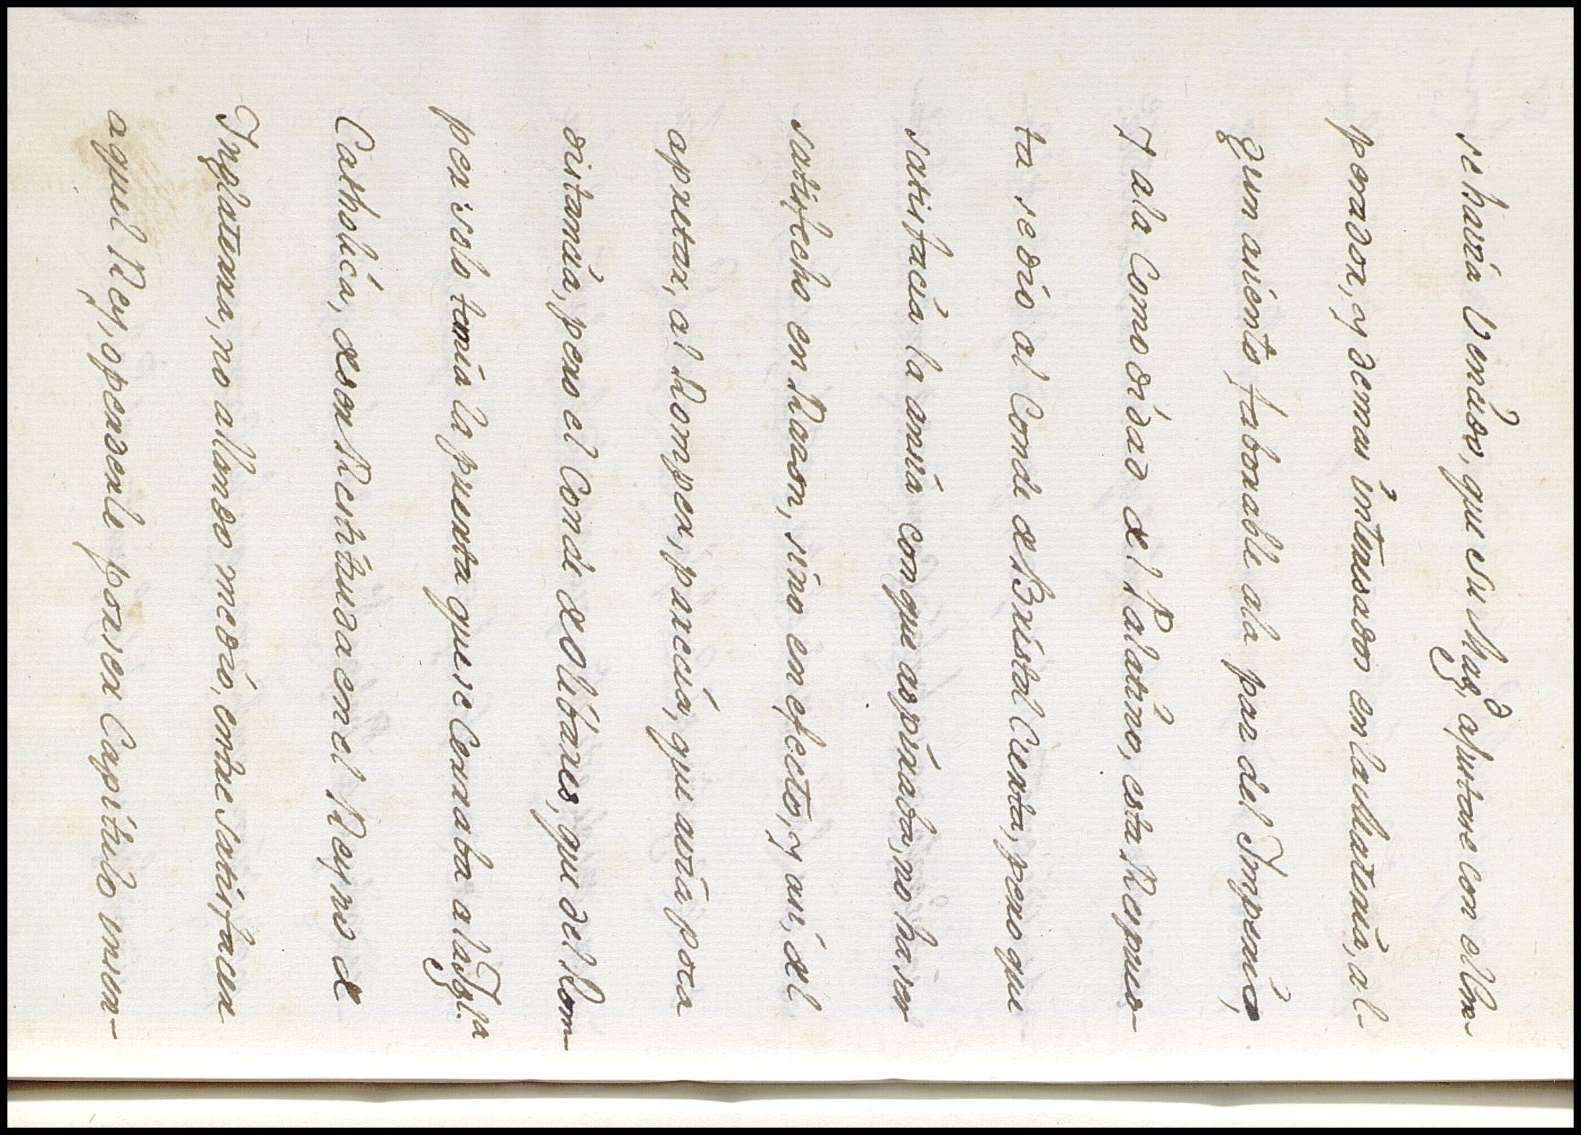 se havia Venido, que su Mag.d apurtase con el Em-
perador, y demas interesados en la Materia, al-
gun asiento faborable ala paz del Imperio,
y ala Comodidad del Palatino, esta Respues-
ta se dio al Conde de Bristol Cuenta, pero que
satisfacia la ansia con que aspiraba, no ha ser
satisfecho en Razon, sino en efecto, y asi, del
apretar, al Romper, parecia, que avia poca
distancia, pero el Conde de Olibares, que del Rom-
per solo temia la puerta que se Cerraba a la Igl.a
Catholica, de ser Restituida en el Reyno de
Inglaterra, no allando medio, entre Satisfacer
aquel Rey, o perderle por ser Capitulo inten-